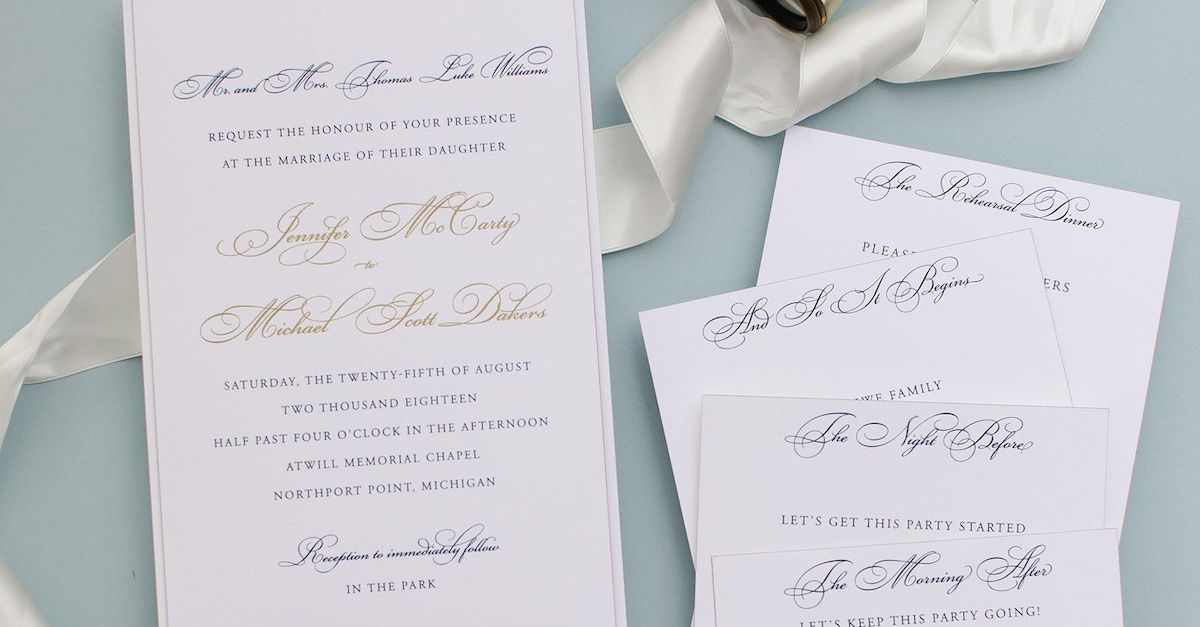 Mr. and Mrs. Thomas Luke Williams
REQUEST THE HONOUR OF YOUR PRESENCE
AT THE MARRIAGE OF THEIR DAUGHTER
Jennifer McCarty
to
Michael Scott Dakers
SATURDAY, THE TWENTY-FIFTH OF AUGUST
TWO THOUSAND EIGHTEEN
HALF PAST FOUR O'CLOCK IN THE AFTERNOON
ATWILL MEMORIAL CHAPEL
NORTHPORT POINT, MICHIGAN
Reception to immediately follow
IN THE PARK
The Rehearsal Dinner
And So It Begins
FAMILY
The Night Before
LET'S GET THIS PARTY STARTED
The Morning After
LET'S KEEP THIS PARTY GOING!